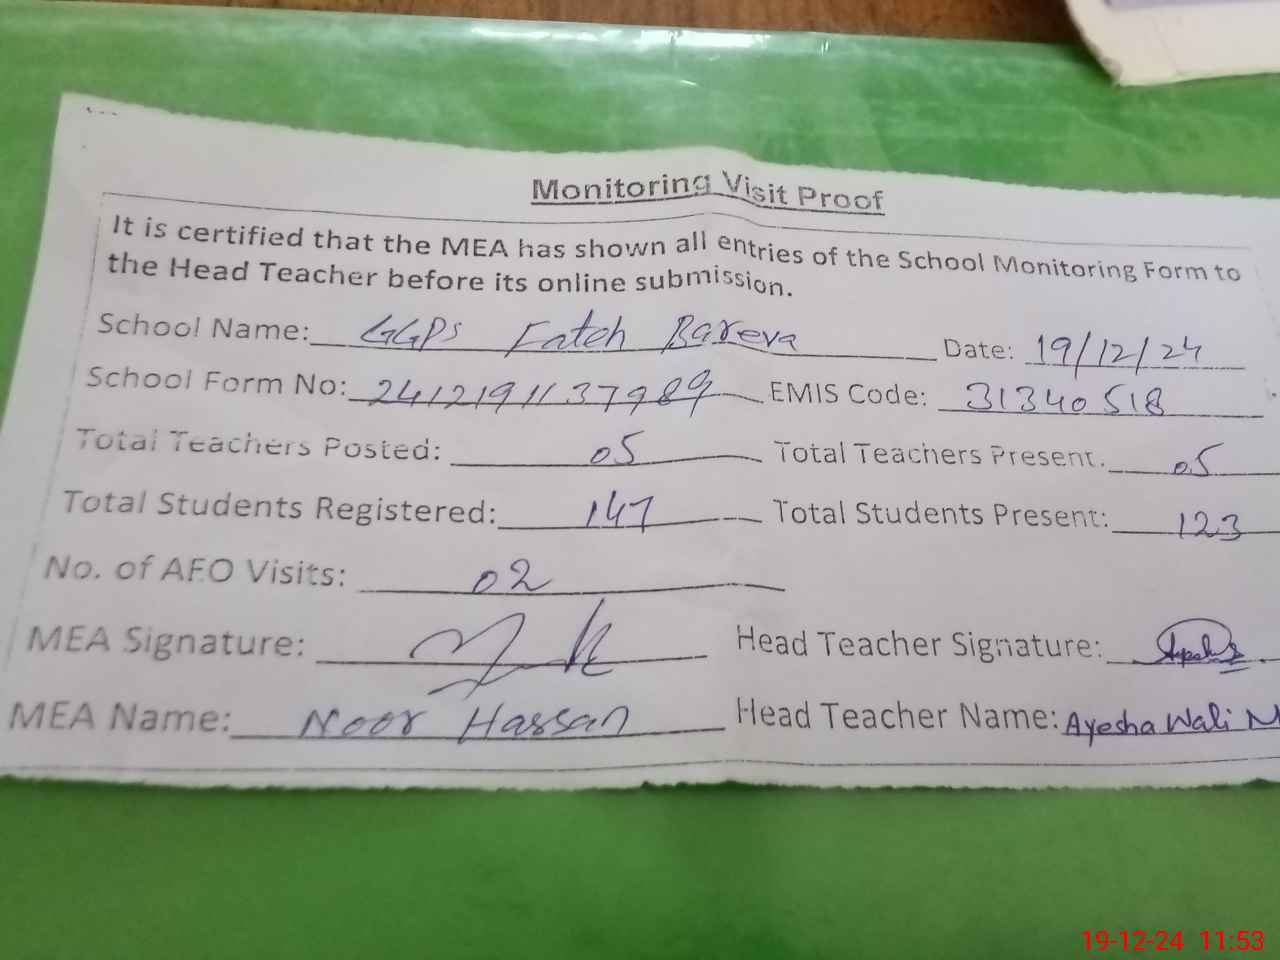 Monitoring Visit Proof
It is certified that the MEA has shown all entries of the School Monitoring Form to
the Head Teacher before its online submission.
School Name: GGPS Fateh Bareva Date: 19/12/24
School Form No: 2412191137989 EMIS Code: 31340518
Total Teachers Posted: 05 Total Teachers Present: 05
Total Students Registered: 147 Total Students Present: 123
No. of AEO Visits: 02
MEA Signature: Head Teacher Signature:
MEA Name: Noor Hassan Head Teacher Name: Ayesha Wali
19-12-24 11:53